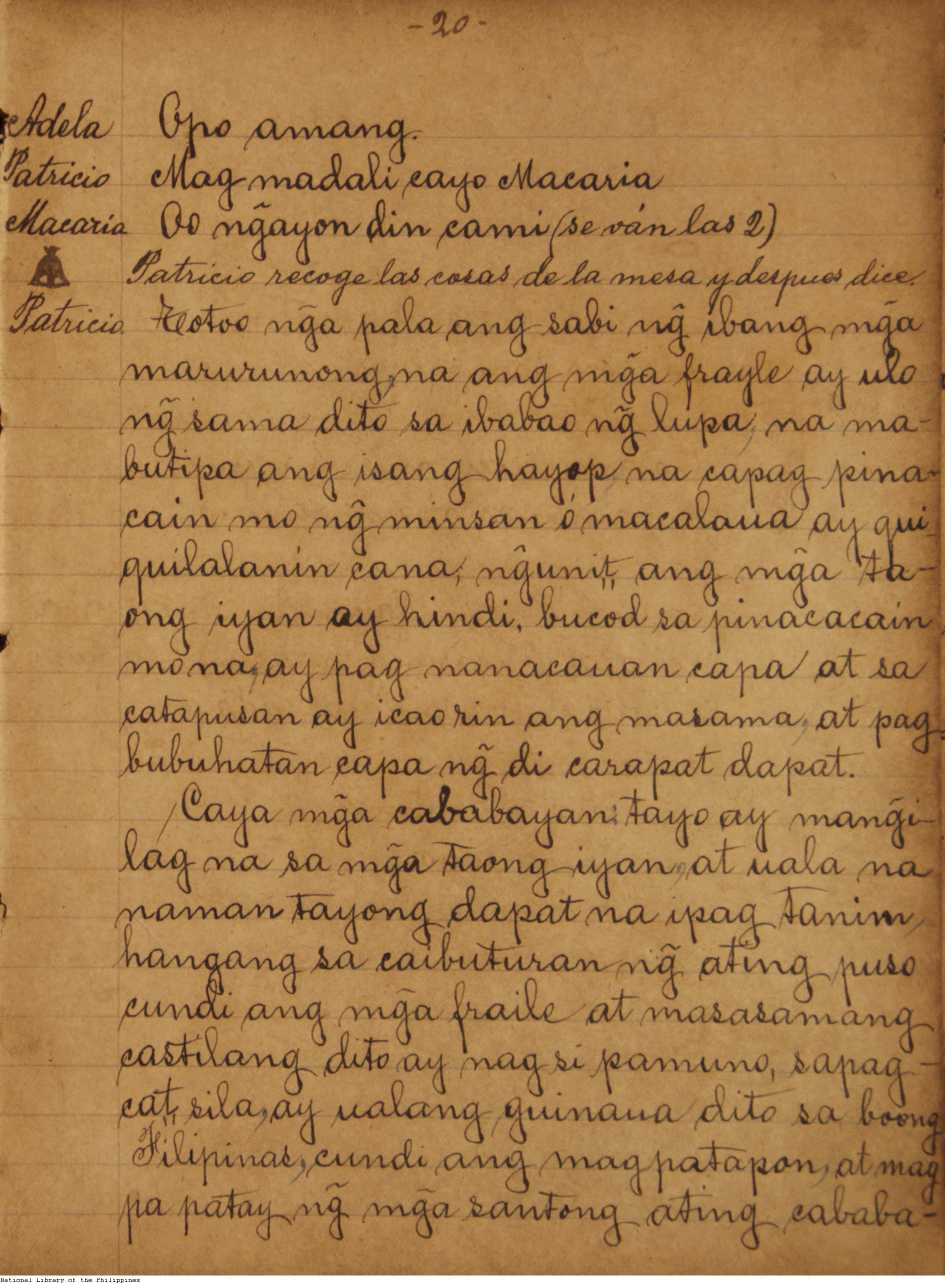 -20-
Adela Opo amang.
Patricio Mag madali cayo Macaria
Macaria Oo ng̃ayon din cami (se ván las 2)
Patricio recoge las cosas de la mesa y despues dice.
Patricio Totoo ng̃a pala ang sabi ng̃ ibang mg̃a
marurunong, na ang mg̃a frayle ay ulo
ng̃ sama dito sa ibabao ng̃ lupa, na ma-
butipa ang isang hayop na capag pina-
cain mo ng̃ minsan ó macalaua ay qui-
quilalanin cana, ng̃unit,, ang mg̃a ta-
ong iyan ay hindi, bucod sa pinacacain
mo na, ay pag nanacauan capa at sa
catapusan ay icao rin ang masama, at pag
bubuhatan capa ng̃ di carapat dapat.
Caya mg̃a cababayan: tayo ay mang̃i-
lag na sa mg̃a taong iyan, at uala na
naman tayong dapat na ipag tanim,
hangang sa caibuturan ng̃ ating puso
cundi ang mg̃a fraile at masasamang
castilang dito ay nag si pamuno, sapag-
cat,, sila, ay ualang guinaua dito sa boong
Filipinas, cundi ang magpatapon, at mag
pa patay ng̃ mg̃a santong ating cababa-
National Library of the Philippines